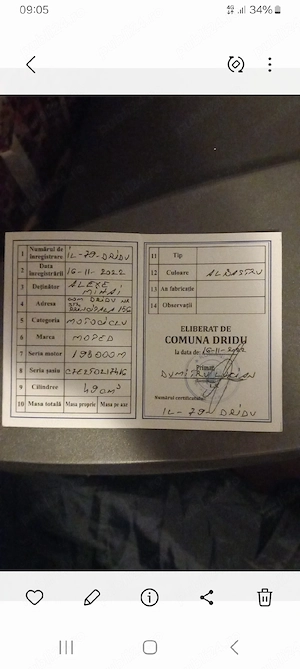 09:05
4G
34%
1 Numărul de înregistrare IL-79-DRIDU
2 Data înregistrării 16-11-2022
3 Deținător ALEXE MIHAI
4 Adresa COM DRIDU NR
STR
5 Categoria MOTOCICLU
6 Marca MOPED
7 Seria motor
8 Seria șasiu
9 Cilindree 49 cm³
10 Masa totală Masa proprie Masa pe axe
11 Tip
12 Culoare ALBASTRU
13 An fabricație
14 Observații
ELIBERAT DE
COMUNA DRIDU
la data de: 16-11-2022
Primar
DUMITRU LUCIAN
Numărul certificatului
IL-79-DRIDU